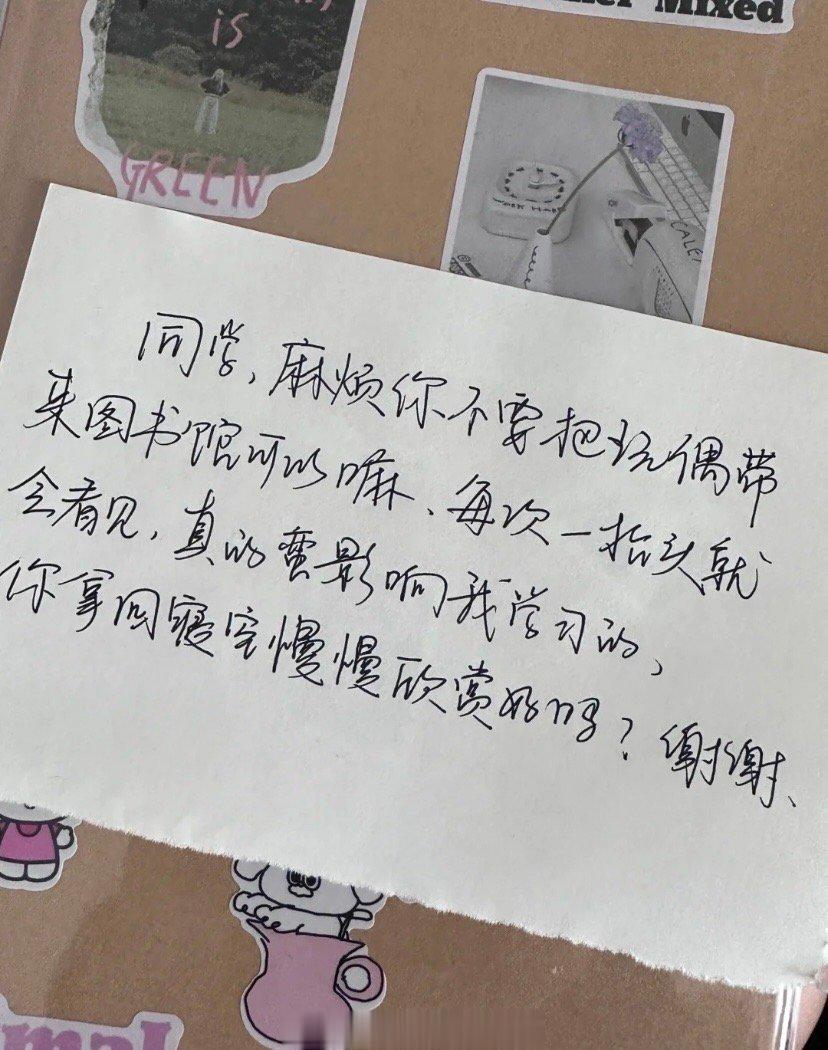 is
GREEN
Mixed
WORK HARD
同学,麻烦你不要把玩偶带
来图书馆可以嘛、每次一抬头就
会看见,真的蛮影响我学习的,
你拿回寝室慢慢欣赏好吗?谢谢、